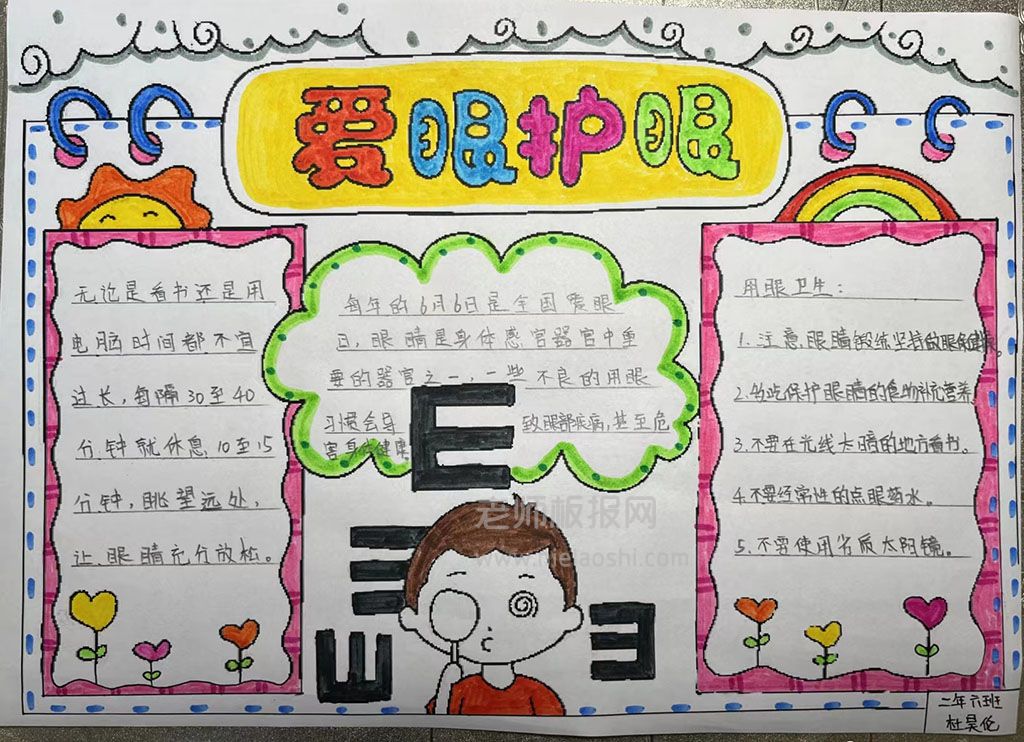 爱眼护眼
无论是看书还是用
电脑时间都不宜
过长，每隔30至40
分钟就休息10至15
分钟，眺望远处，
让眼睛充分放松。
每年的6月6日是全国爱眼
日，眼睛是身体感官器官中重
要的器官之一，一些不良的用眼
习惯会导 致眼部疾病，甚至危
害身体健康
E
老师板报网
用眼卫生：
1.注意眼睛锻练坚持做眼保健操。
2.多吃保护眼睛的食物补充营养
3.不要在光线太暗的地方看书。
4.不要经常性的点眼药水。
5.不要使用劣质太阳镜。
二年六班
杜昊伦